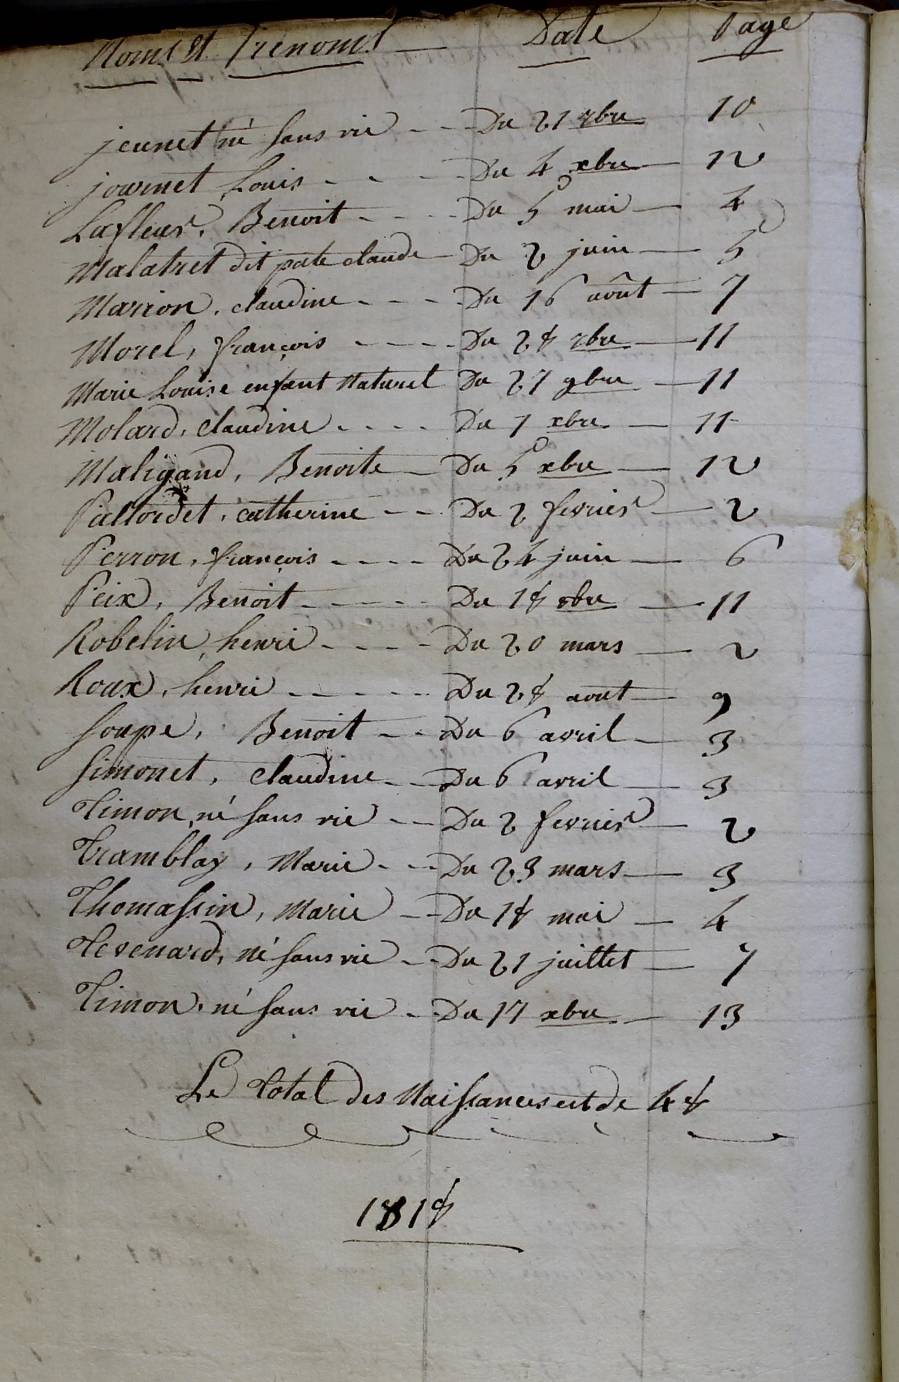 Noms et Prenoms Date Page
jeunet né sans vie Du 21 8bre 10
journet Louis Du 4 xbre 12
Lafleur, Benoit Du 5 mai 4
Malatret dit pate claude Du 2 juin 5
Marion, claudine Du 16 août 7
Morel, françois Du 28 9bre 11
Marie Louise enfant Naturel Du 27 9bre 11
Molard, claudine Du 1 xbre 11
Maligand, Benoite Du 5 xbre 12
catherine Du 2 fevrier 2
Perron, françois Du 24 juin 6
Peix, Benoit Du 18 11
Robelin, henri Du 20 mars 2
Roux, henri Du 28 aout 9
Soupe, Benoit Du 6 avril 3
Simonet, claudine Du 6 avril 3
Timon, né sans vie Du 2 fevrier 2
Tramblay, Marie Du 23 mars 3
Thomassin, Marie Du 18 mai 4
Tevenard, né sans vie Du 21 juillet 7
Timon, né sans vie Du 17 xbre 13
Le total des Naissances est de 48
1818